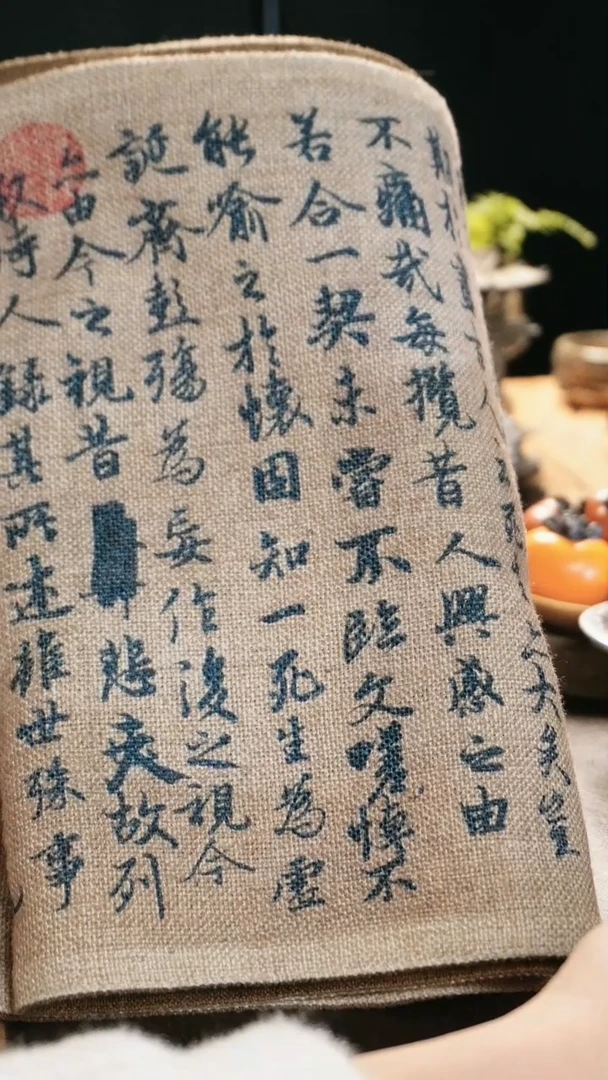 期於盡人云死亦大矣豈
不痛哉每攬昔人興感之由
若合一契未嘗不臨文嗟悼不
能喻之於懷固知一死生為虛
誕齊彭殤為妄作後之視今
亦由今之視昔悲夫故列
叙時人録其所述雖世殊事